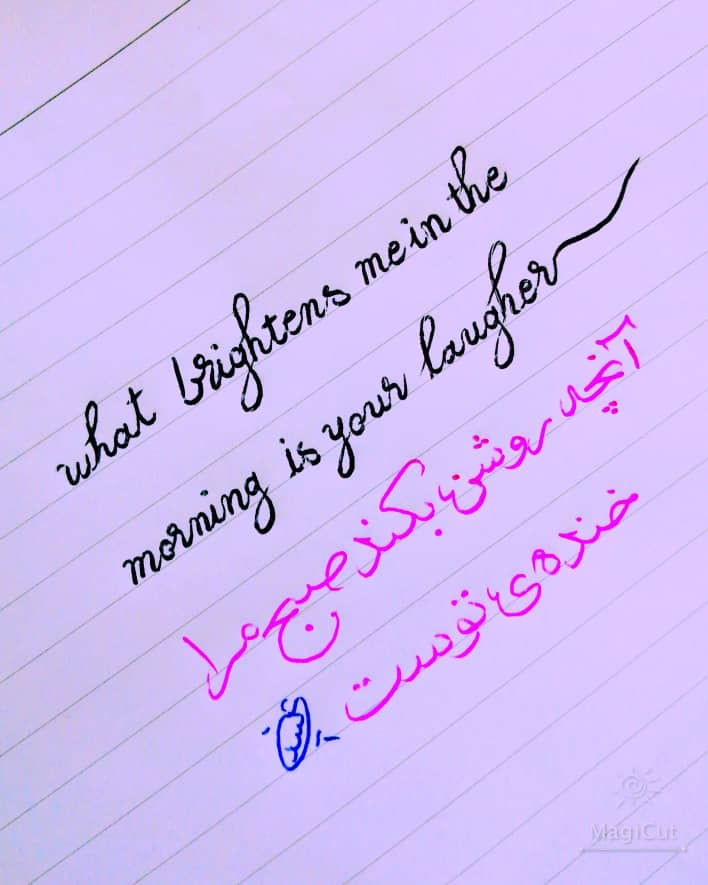 what brightens me in the
morning is your laugher
آنچه روشن بکند صبح مرا
خنده ی توست
MagiCut